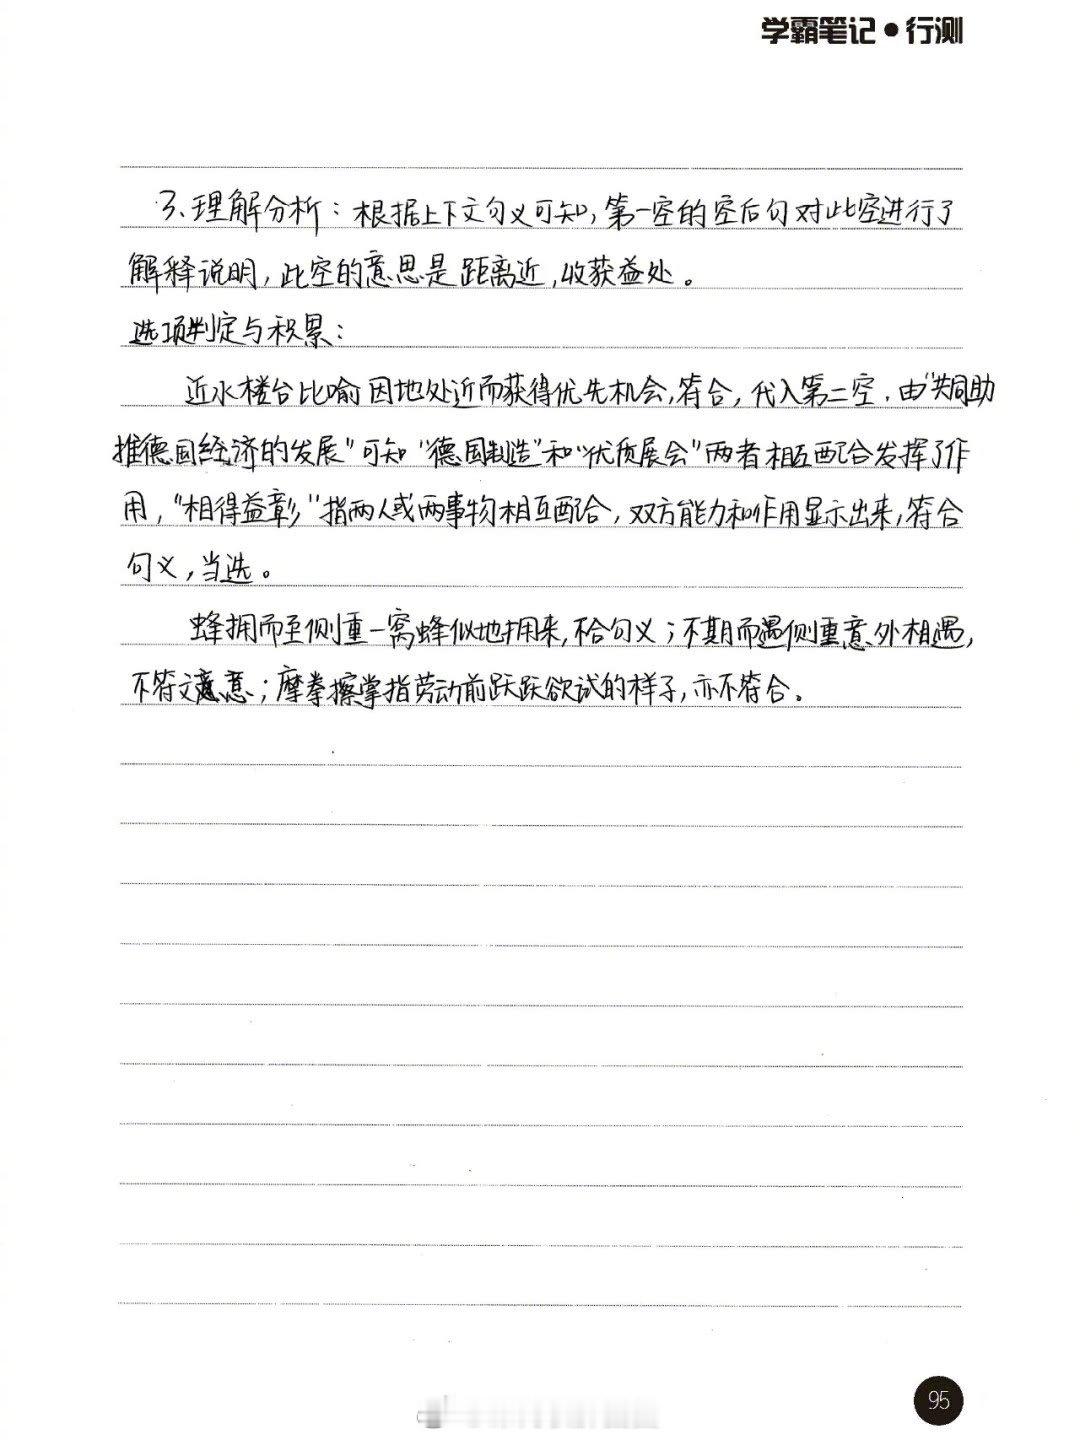 学霸笔记●行测
3、理解分析：根据上下文句义可知，第一空的空后句对此空进行了
解释说明，此空的意思是距离近，收获益处。
选项判定与积累：
近水楼台比喻因地处近而获得优先机会，符合，代入第二空．由“共同助
推德国经济的发展”可知“德国制造”和“优质展会”两者相互配合发挥了作
用，“相得益彰”指两人或两事物相互配合，双方能力和作用显示出来，符合
句义，当选。
蜂拥而至侧重一窝蜂似地拥来，不合句义；不期而遇侧重意外相遇，
不符文意；摩拳擦掌指劳动前跃跃欲试的样子，亦不符合。
95